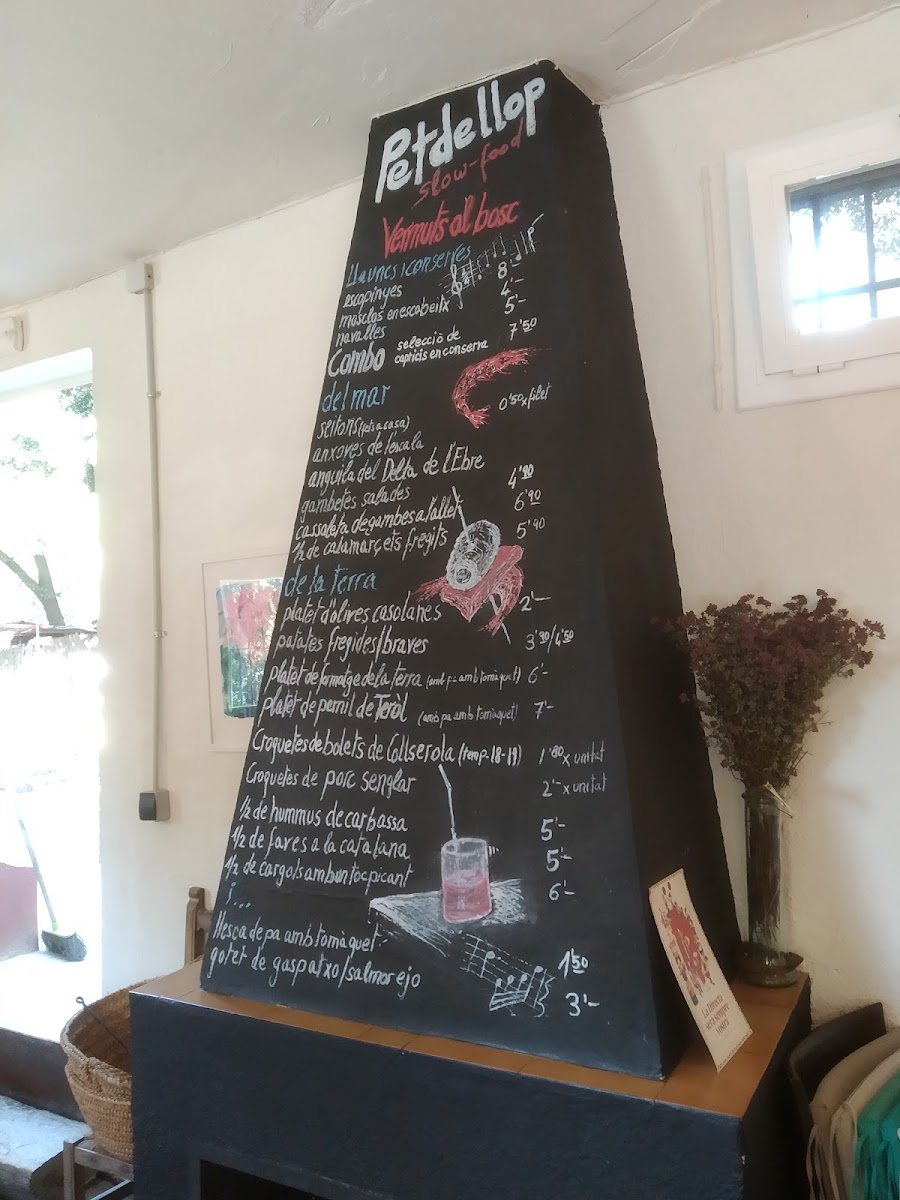 Petdellop
slow-food
Vermuts al bosc
Llaunes i conserves
escopinyes 8'-
musclos en escabeitx 4'-
navalles 5'-
Combo selecció de capricis en conserva 7'50
del mar
seitons (fets a casa) 0'50 x filet
anxoves de l'escala
anguila del Delta de l'Ebre
gambetes salades 4'90
cassoleta de gambes a l'allet 6'90
1/2 de calamarçets fregits 5'90
de la terra
platet d'olives casolanes 2'-
patates fregides/braves 3'90/4'50
platet de formatge de la terra (amb pa amb tomàquet) 6'-
platet de pernil de Teròl (amb pa amb tomàquet) 7'-
Croquetes de bolets de Collserola (temp. 18-19) 1'80 x unitat
Croquetes de porc senglar 2'- x unitat
1/2 de hummus de carbassa 5'-
1/2 de faves a la catalana 5'-
1/2 de cargols amb un toc picant 6'-
i...
llesca de pa amb tomàquet 1'50
gotet de gaspatxo/salmorejo 3'-
La Directa
serà sempre
vostra